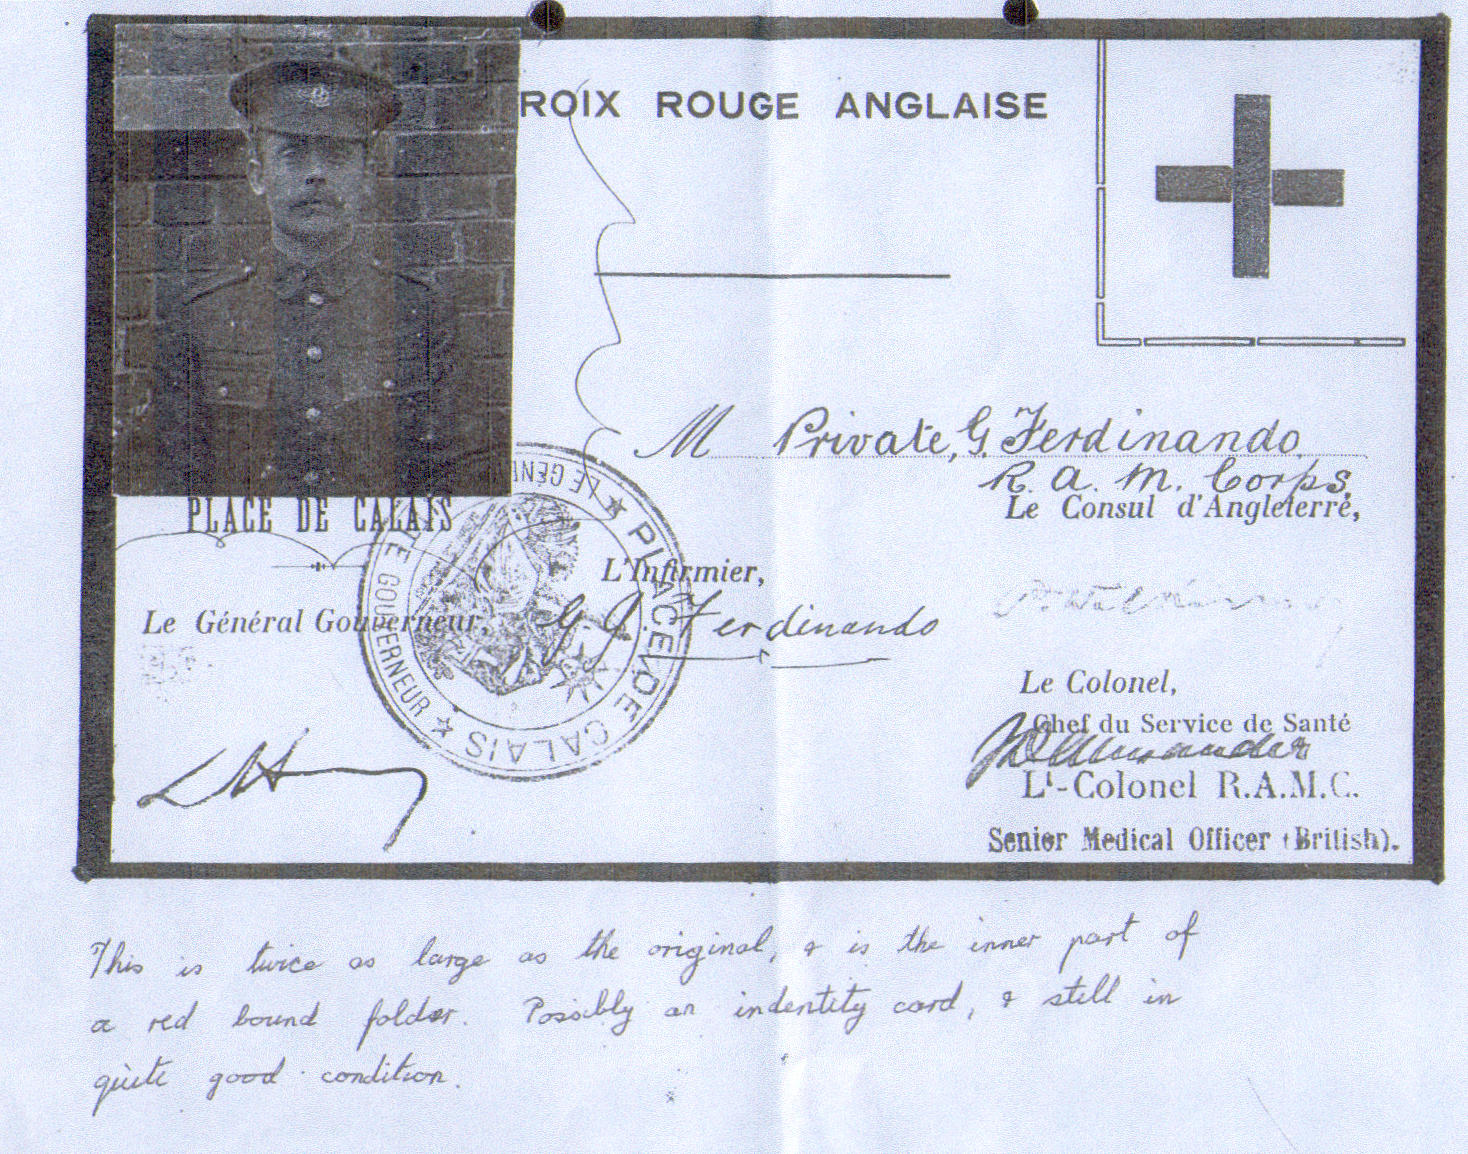 ROIX ROUGE ANGLAISE
M Private, G. Ferdinando,
R. A. M. Corps,
Le Consul d'Angleterre,
PLACE DE CALAIS
L'Infirmier,
Le Général Gouverneur,
G. J. Ferdinando
LE GÉNÉ
GOUVERNEUR ★
★ PLACE DE CALAIS
Le Colonel,
Chef du Service de Santé
Lt-Colonel R.A.M.C.
Senior Medical Officer (British).
This is twice as large as the original, & is the inner part of
a red bound folder. Possibly an indentity card, & still in
quite good condition.